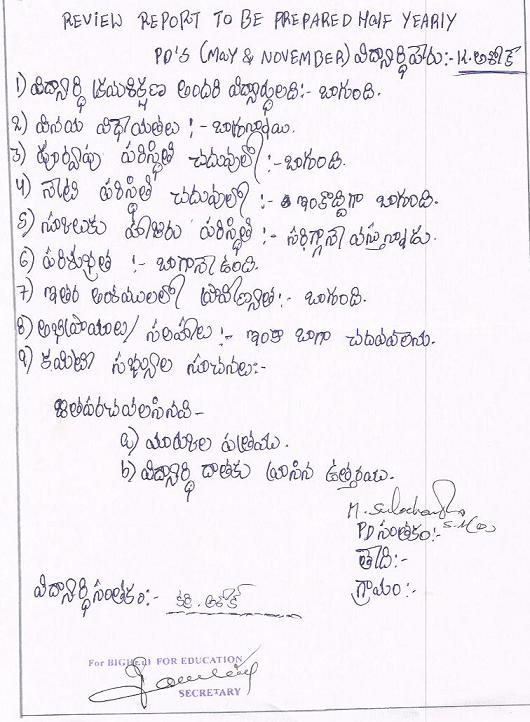 REVIEW REPORT TO BE PREPARED HALF YEARLY
PD'S (MAY & NOVEMBER) విద్యార్థి పేరు:- K. అశోక్
1) విద్యార్థి క్రమశిక్షణ అందరి విద్యార్థులది:- బాగుంది.
2) వినయ విధేయతలు :- బాగున్నాయి.
3) పూర్వపు పరిస్థితి చదువులో :- బాగుంది.
4) నేటి పరిస్థితి చదువులో :- ఇంకొద్దిగా బాగుంది.
5) స్కూలుకు హాజరు పరిస్థితి :- సరిగ్గానే వస్తున్నాడు.
6) పరిశుభ్రత :- బాగానే ఉంది.
7) ఇతర అంశములలో ప్రావీణ్యత:- బాగుంది.
8) అభిప్రాయాలు/ సలహాలు :- ఇంకా బాగా చదవవలెను.
9) కమిటి సభ్యుల సూచనలు:-
జతపరచవలసినవి-
a) మార్కుల పత్రము.
b) విద్యార్థి దాతకు వ్రాసిన ఉత్తరము.
PD సంతకం:-
తేది:-
గ్రామం:-
విద్యార్థి సంతకం:- కె. అశోక్
FOR EDUCATION
SECRETARY